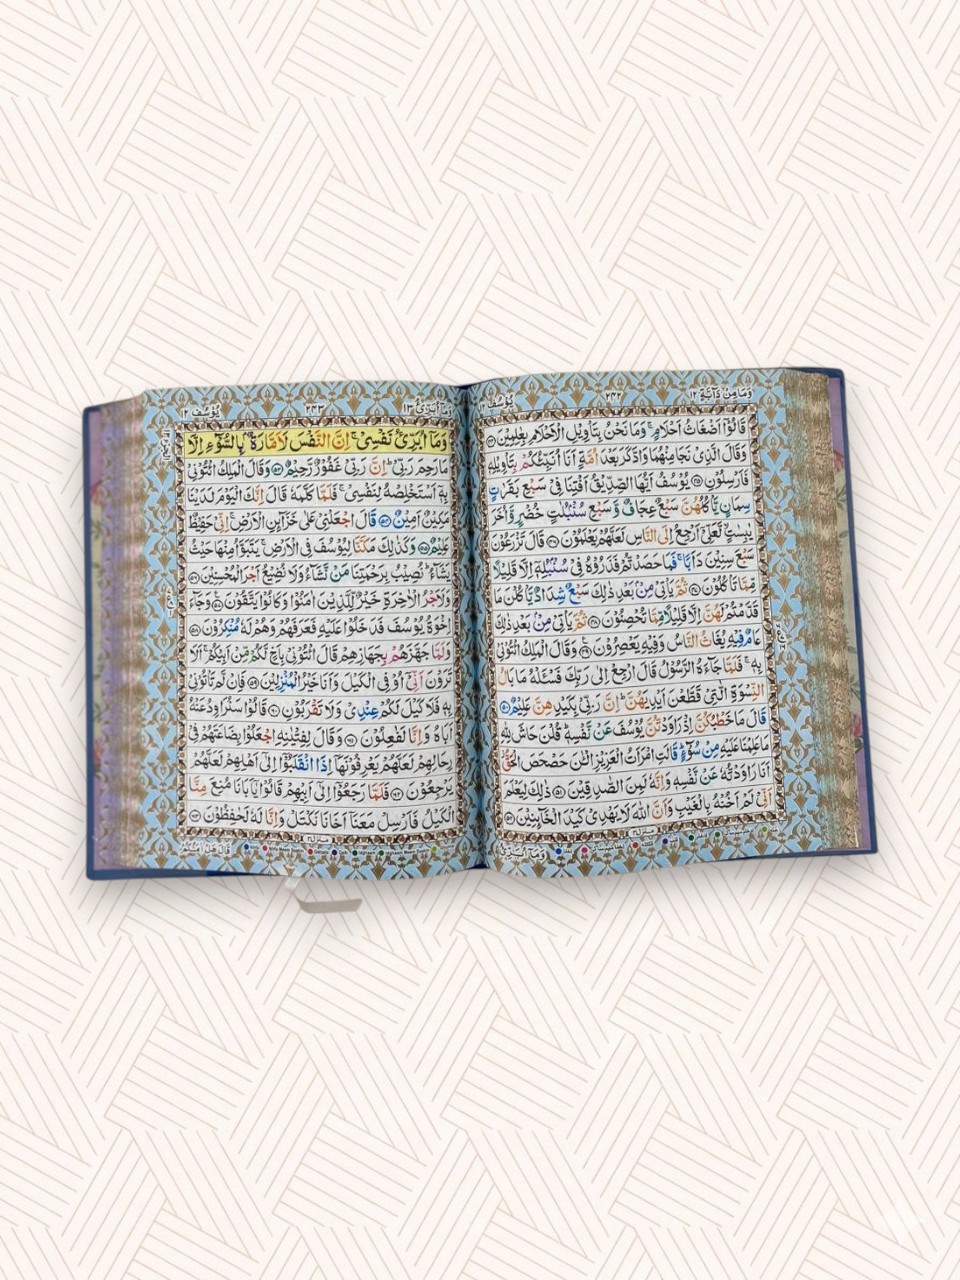 وَمَا مِنْ دَآبَّةٍ ١٢ ٢٤٢ يُوْسُف ١٢
قَالُوْٓا اَضْغَاثُ اَحْلَامٍ ۚ وَمَا نَحْنُ بِتَاْوِيْلِ الْاَحْلَامِ بِعٰلِمِيْنَ ﴿٤٤﴾
وَقَالَ الَّذِيْ نَجَا مِنْهُمَا وَادَّكَرَ بَعْدَ اُمَّةٍ اَنَا اُنَبِّئُكُمْ بِتَاْوِيْلِهٖ
فَاَرْسِلُوْنِ ﴿٤٥﴾ يُوْسُفُ اَيُّهَا الصِّدِّيْقُ اَفْتِنَا فِيْ سَبْعِ بَقَرٰتٍ
سِمَانٍ يَّاْكُلُهُنَّ سَبْعٌ عِجَافٌ وَّسَبْعِ سُنْۢبُلٰتٍ خُضْرٍ وَّاُخَرَ
يٰبِسٰتٍ ۙ لَّعَلِّيْٓ اَرْجِعُ اِلَى النَّاسِ لَعَلَّهُمْ يَعْلَمُوْنَ ﴿٤٦﴾ قَالَ تَزْرَعُوْنَ
سَبْعَ سِنِيْنَ دَاَبًا ۚ فَمَا حَصَدْتُّمْ فَذَرُوْهُ فِيْ سُنْۢبُلِهٖٓ اِلَّا قَلِيْلًا
مِّمَّا تَاْكُلُوْنَ ﴿٤٧﴾ ثُمَّ يَاْتِيْ مِنْۢ بَعْدِ ذٰلِكَ سَبْعٌ شِدَادٌ يَّاْكُلْنَ مَا
قَدَّمْتُمْ لَهُنَّ اِلَّا قَلِيْلًا مِّمَّا تُحْصِنُوْنَ ﴿٤٨﴾ ثُمَّ يَاْتِيْ مِنْۢ بَعْدِ ذٰلِكَ
عَامٌ فِيْهِ يُغَاثُ النَّاسُ وَفِيْهِ يَعْصِرُوْنَ ﴿٤٩﴾ وَقَالَ الْمَلِكُ ائْتُوْنِيْ
بِهٖ ۚ فَلَمَّا جَآءَهُ الرَّسُوْلُ قَالَ ارْجِعْ اِلٰى رَبِّكَ فَسْـَٔلْهُ مَا بَالُ
النِّسْوَةِ الّٰتِيْ قَطَّعْنَ اَيْدِيَهُنَّ ؕ اِنَّ رَبِّيْ بِكَيْدِهِنَّ عَلِيْمٌ ﴿٥٠﴾
قَالَ مَا خَطْبُكُنَّ اِذْ رَاوَدْتُّنَّ يُوْسُفَ عَنْ نَّفْسِهٖ ؕ قُلْنَ حَاشَ لِلّٰهِ
مَا عَلِمْنَا عَلَيْهِ مِنْ سُوْٓءٍ ؕ قَالَتِ امْرَاَتُ الْعَزِيْزِ الْـٰٔنَ حَصْحَصَ الْحَقُّ
اَنَا رَاوَدْتُّهٗ عَنْ نَّفْسِهٖ وَاِنَّهٗ لَمِنَ الصّٰدِقِيْنَ ﴿٥١﴾ ذٰلِكَ لِيَعْلَمَ
اَنِّيْ لَمْ اَخُنْهُ بِالْغَيْبِ وَاَنَّ اللّٰهَ لَا يَهْدِيْ كَيْدَ الْخَآئِنِيْنَ ﴿٥٢﴾
وَمَآ اُبَرِّئُ ١٣ ٢٤٣ يُوْسُف ١٢
وَمَآ اُبَرِّئُ نَفْسِيْ ۚ اِنَّ النَّفْسَ لَاَمَّارَةٌۢ بِالسُّوْٓءِ اِلَّا
مَا رَحِمَ رَبِّيْ ؕ اِنَّ رَبِّيْ غَفُوْرٌ رَّحِيْمٌ ﴿٥٣﴾ وَقَالَ الْمَلِكُ ائْتُوْنِيْ
بِهٖٓ اَسْتَخْلِصْهُ لِنَفْسِيْ ۚ فَلَمَّا كَلَّمَهٗ قَالَ اِنَّكَ الْيَوْمَ لَدَيْنَا
مَكِيْنٌ اَمِيْنٌ ﴿٥٤﴾ قَالَ اجْعَلْنِيْ عَلٰى خَزَآئِنِ الْاَرْضِ ۚ اِنِّيْ حَفِيْظٌ
عَلِيْمٌ ﴿٥٥﴾ وَكَذٰلِكَ مَكَّنَّا لِيُوْسُفَ فِي الْاَرْضِ ۚ يَتَبَوَّاُ مِنْهَا حَيْثُ
يَشَآءُ ؕ نُصِيْبُ بِرَحْمَتِنَا مَنْ نَّشَآءُ وَلَا نُضِيْعُ اَجْرَ الْمُحْسِنِيْنَ ﴿٥٦﴾
وَلَاَجْرُ الْاٰخِرَةِ خَيْرٌ لِّلَّذِيْنَ اٰمَنُوْا وَكَانُوْا يَتَّقُوْنَ ﴿٥٧﴾ وَجَآءَ
اِخْوَةُ يُوْسُفَ فَدَخَلُوْا عَلَيْهِ فَعَرَفَهُمْ وَهُمْ لَهٗ مُنْكِرُوْنَ ﴿٥٨﴾
وَلَمَّا جَهَّزَهُمْ بِجَهَازِهِمْ قَالَ ائْتُوْنِيْ بِاَخٍ لَّكُمْ مِّنْ اَبِيْكُمْ ۚ اَلَا
تَرَوْنَ اَنِّيْٓ اُوْفِي الْكَيْلَ وَاَنَا خَيْرُ الْمُنْزِلِيْنَ ﴿٥٩﴾ فَاِنْ لَّمْ تَاْتُوْنِيْ
بِهٖ فَلَا كَيْلَ لَكُمْ عِنْدِيْ وَلَا تَقْرَبُوْنِ ﴿٦٠﴾ قَالُوْا سَنُرَاوِدُ عَنْهُ
اَبَاهُ وَاِنَّا لَفٰعِلُوْنَ ﴿٦١﴾ وَقَالَ لِفِتْيٰنِهِ اجْعَلُوْا بِضَاعَتَهُمْ فِيْ
رِحَالِهِمْ لَعَلَّهُمْ يَعْرِفُوْنَهَآ اِذَا انْقَلَبُوْٓا اِلٰٓى اَهْلِهِمْ لَعَلَّهُمْ
يَرْجِعُوْنَ ﴿٦٢﴾ فَلَمَّا رَجَعُوْٓا اِلٰٓى اَبِيْهِمْ قَالُوْا يٰٓاَبَانَا مُنِعَ مِنَّا
الْكَيْلُ فَاَرْسِلْ مَعَنَآ اَخَانَا نَكْتَلْ وَاِنَّا لَهٗ لَحٰفِظُوْنَ ﴿٦٣﴾